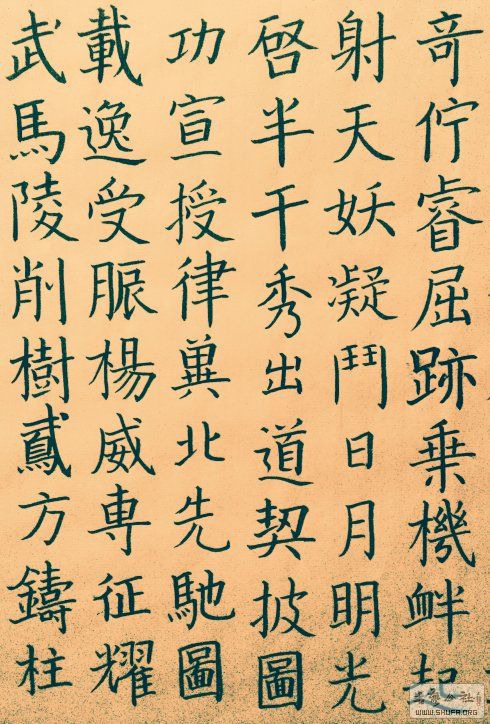 竒佇睿屈跡乗機衅起
射天妖凝鬥日月明光
啓半千秀出道契披圖
功宣授律冀北先馳圖
載逸受脤楊威専征耀
武馬陵削樹方鑄柱
WWW.SHUFA.ORG